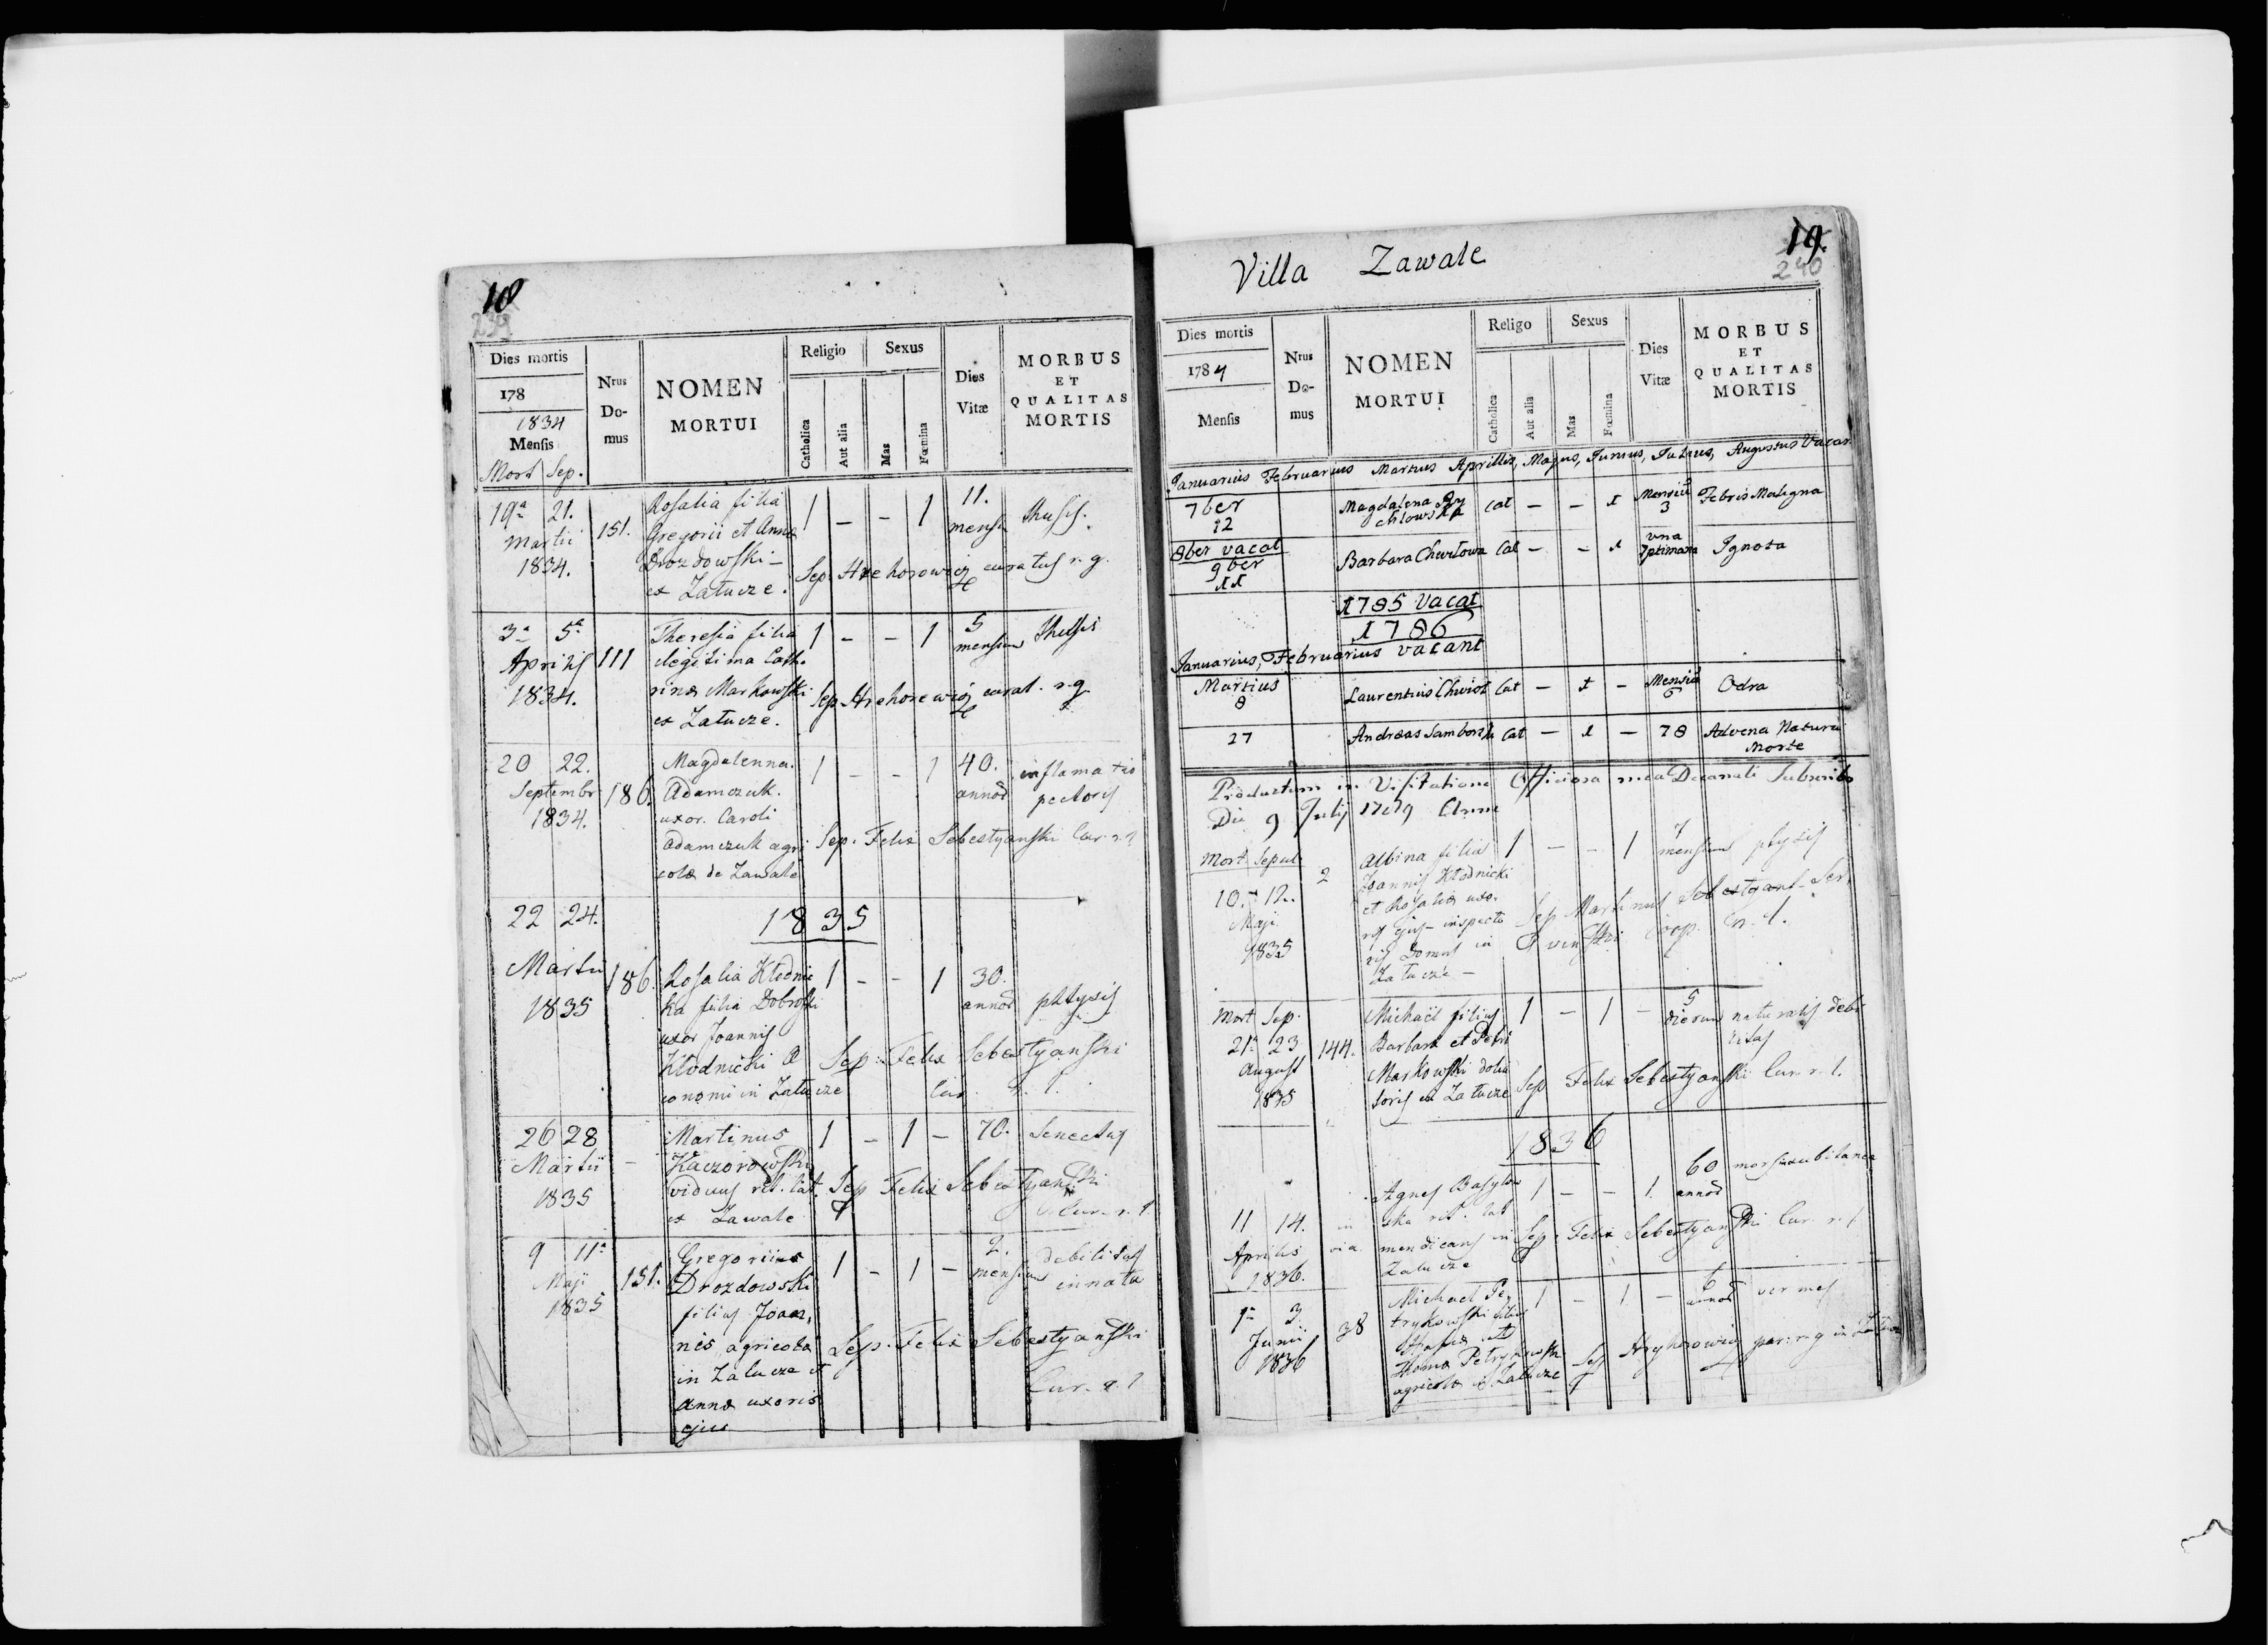 18
239
Dies mortis
178
1834
Mensis
Mort Sep.
Nrus Do- mus
NOMEN
MORTUI
Religio
Catholica
Aut alia
Sexus
Mas
Fœmina
Dies
Vitæ
MORBUS
ET
QUALITAS
MORTIS
19ª 21.
Martii
1834.
151.
Rosalia filia
Gregorii et Anna
Drozdowski
ex Zatucze.
1 - - 1
11.
mensiu
thusis.
Sep. Hrehorowicz curatus r. g.
3ª 5ª
Aprilis
1834.
111
Theresia filia
ilegitima Catha
rina Markowski
ex Zatucze.
1 - - 1
5
mensium
thussis
Sep. Hrehorowicz curat. r. g.
20 22.
Septembr
1834.
186.
Magdalenna
Adamczuk.
uxor. Caroli
Adamczuk agri
colæ de Zawale
1 - - 1
40.
annor
inflamatio
pectoris
Sep. Felix Sebestyanski Cur. r. l.
1835
22 24.
Martii
1835
186.
Rosalia Kłodnic
ka filia Dobroski
uxor Joannis
Kłodnicki Œ
conomi in Zatucze
1 - - 1
30.
annor
phtysis
Sep. Felix Sebestyanski
Cur. r. l.
26 28
Martii
1835
-
Martinus
Kaczorowski
viduus rit. lat.
ex Zawale
1 - 1 -
70.
Senectus
Sep Felix Sebestyanski
Cur. r. l.
9 11ª
Maji
1835
151.
Gregorius
Drozdowski
filius Joan,
nis agricola
in Zalucze et
Anna uxoris
ejus
1 - 1 -
2.
mensium
debilitas
innata
Sep. Felix Sebestyanski
Cur. r. l
Villa Zawale
19.
240
Dies mortis
1784
Mensis
Nrus Do- mus
NOMEN
MORTUI
Religo
Catholica
Aut alia
Sexus
Mas
Fœmina
Dies
Vitæ
MORBUS
ET
QUALITAS
MORTIS
Januarius Februarius Martius Aprillis, Majus, Junius, Julius, Augustus Vacat
7ber
12
Cat - - 1
Mensiu
3
Febris Maligna
8ber vacat
9ber
11
Barbara Chwilowa
Cat - - 1
una
Ignota
1785 Vacat
1786
Januarius, Februarius vacant
Martius
8
Laurentius Chwist
Cat - 1 -
Mensiu
6
Odra
27
Andreas Samborski
Cat - 1 -
78
Advena Naturali
Morte
Productum in Visitatione Officiosa mea Decanali Subscribo
Die 9 Julij
Mort. Sepul.
10. 12.
Maji
1835
2
Albina filia
Joannis Kłodnicki
et Rosalia uxo
ris ejus inspecto
ris Domus in
Zatucze
1 - - 1
7
mensium
phtysis
Sep Martinus
Coop. r. l.
Mort Sep.
21ª 23
August
1835
144.
Michaël filius
Barbara et Petri
Markowski dolia
toris ex Zatucze
1 - 1 -
5
dierum
naturalis debi
litas
Sep Felix Sebestyanski Cur r. l.
1836
11 14.
Aprilis
1836.
in
via
Agnes Basylow
ska rit. lat
mendicans in
Zalucze
1 - - 1
60
annor
mors subitanea
Sep. Felix Sebestyanski Cur. r. l
1ª 3.
Junii
1836
38
Michael Pe,
trykowski filius
agricola
1 - 1 -
6
annor
vermes
Sep Hryhorowicz par. r. g in